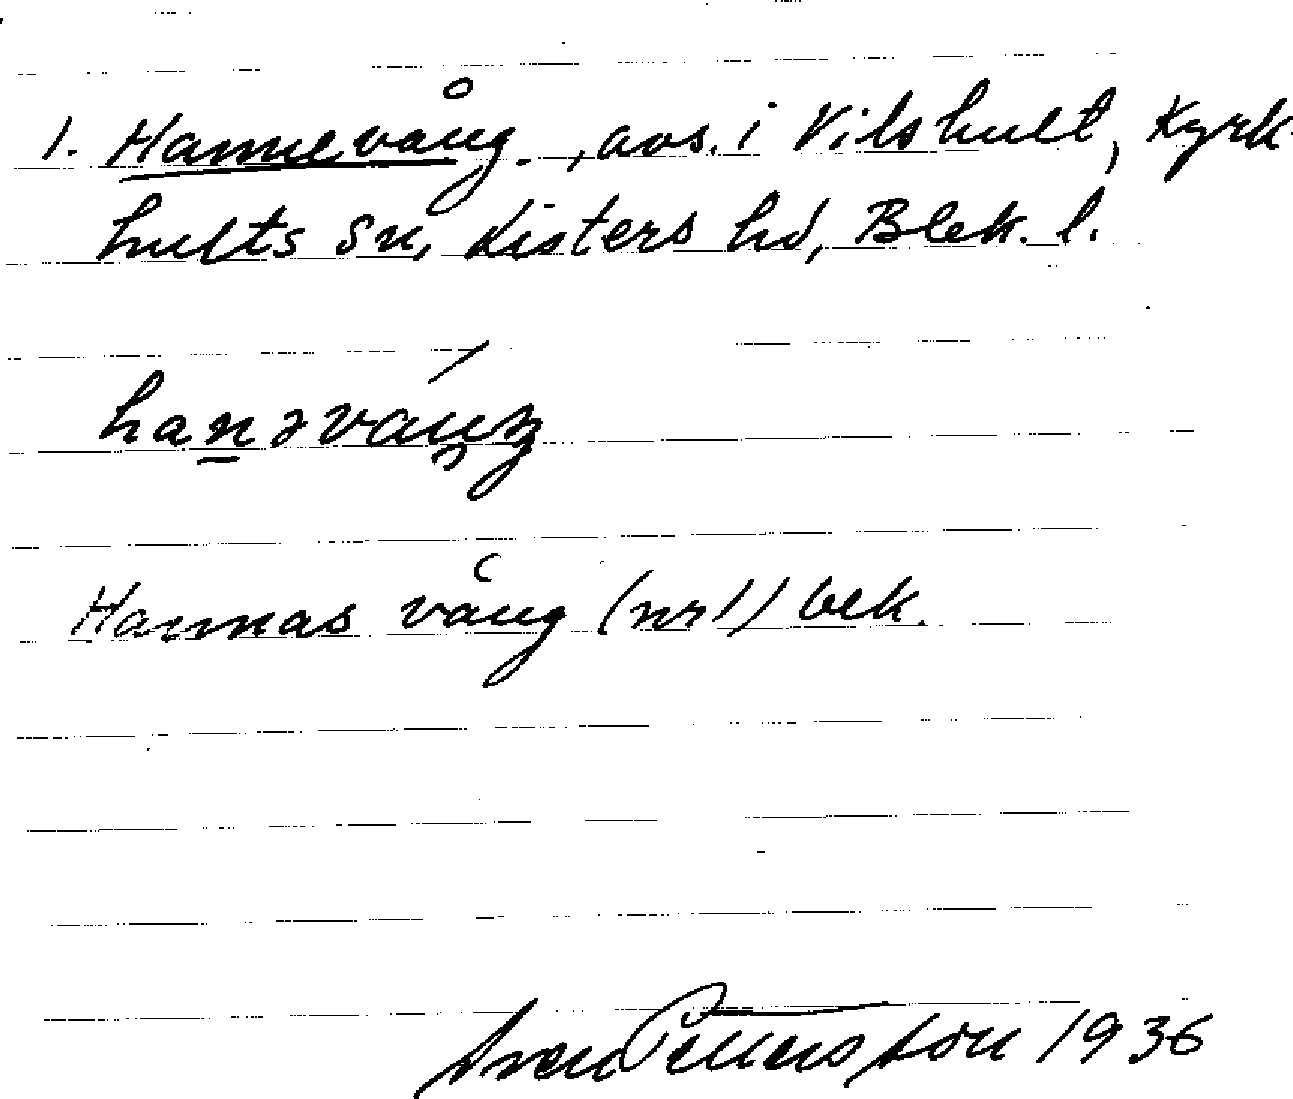 1. Hannevång, avs. i Vilshult, Kyrk-
hults sn, Listers hd, Blek. l.
Hannas vång (nr 1) bek.
Sven Petersson 1936